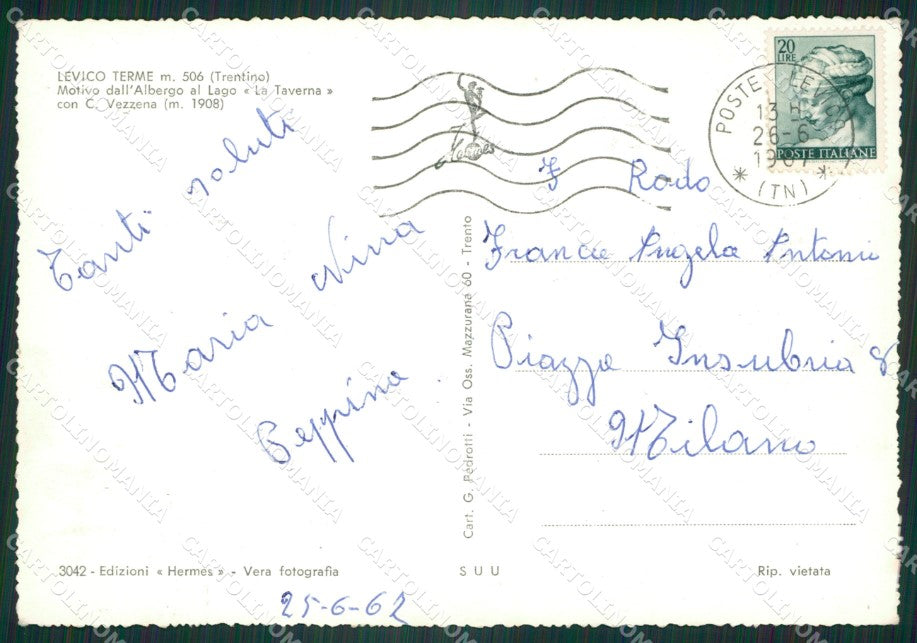 LEVICO TERME m. 506 (Trentino)
Motivo dall'Albergo al Lago « La Taverna »
con C. Vezzena (m. 1908)
Tanti saluti
Maria Nina
Peppina
25-6-62
Hermes
20
LIRE
POSTE ITALIANE
POSTE LEVICO
13
26-6
(TN)
Rado
Franca Angela Antonia
Piazza Insubria 8
Milano
Cart. G. Pedrotti - Via Oss. Mazzurana 60 - Trento
3042 - Edizioni « Hermes » - Vera fotografia
S U U
Rip. vietata
CARTOLINOMANIA